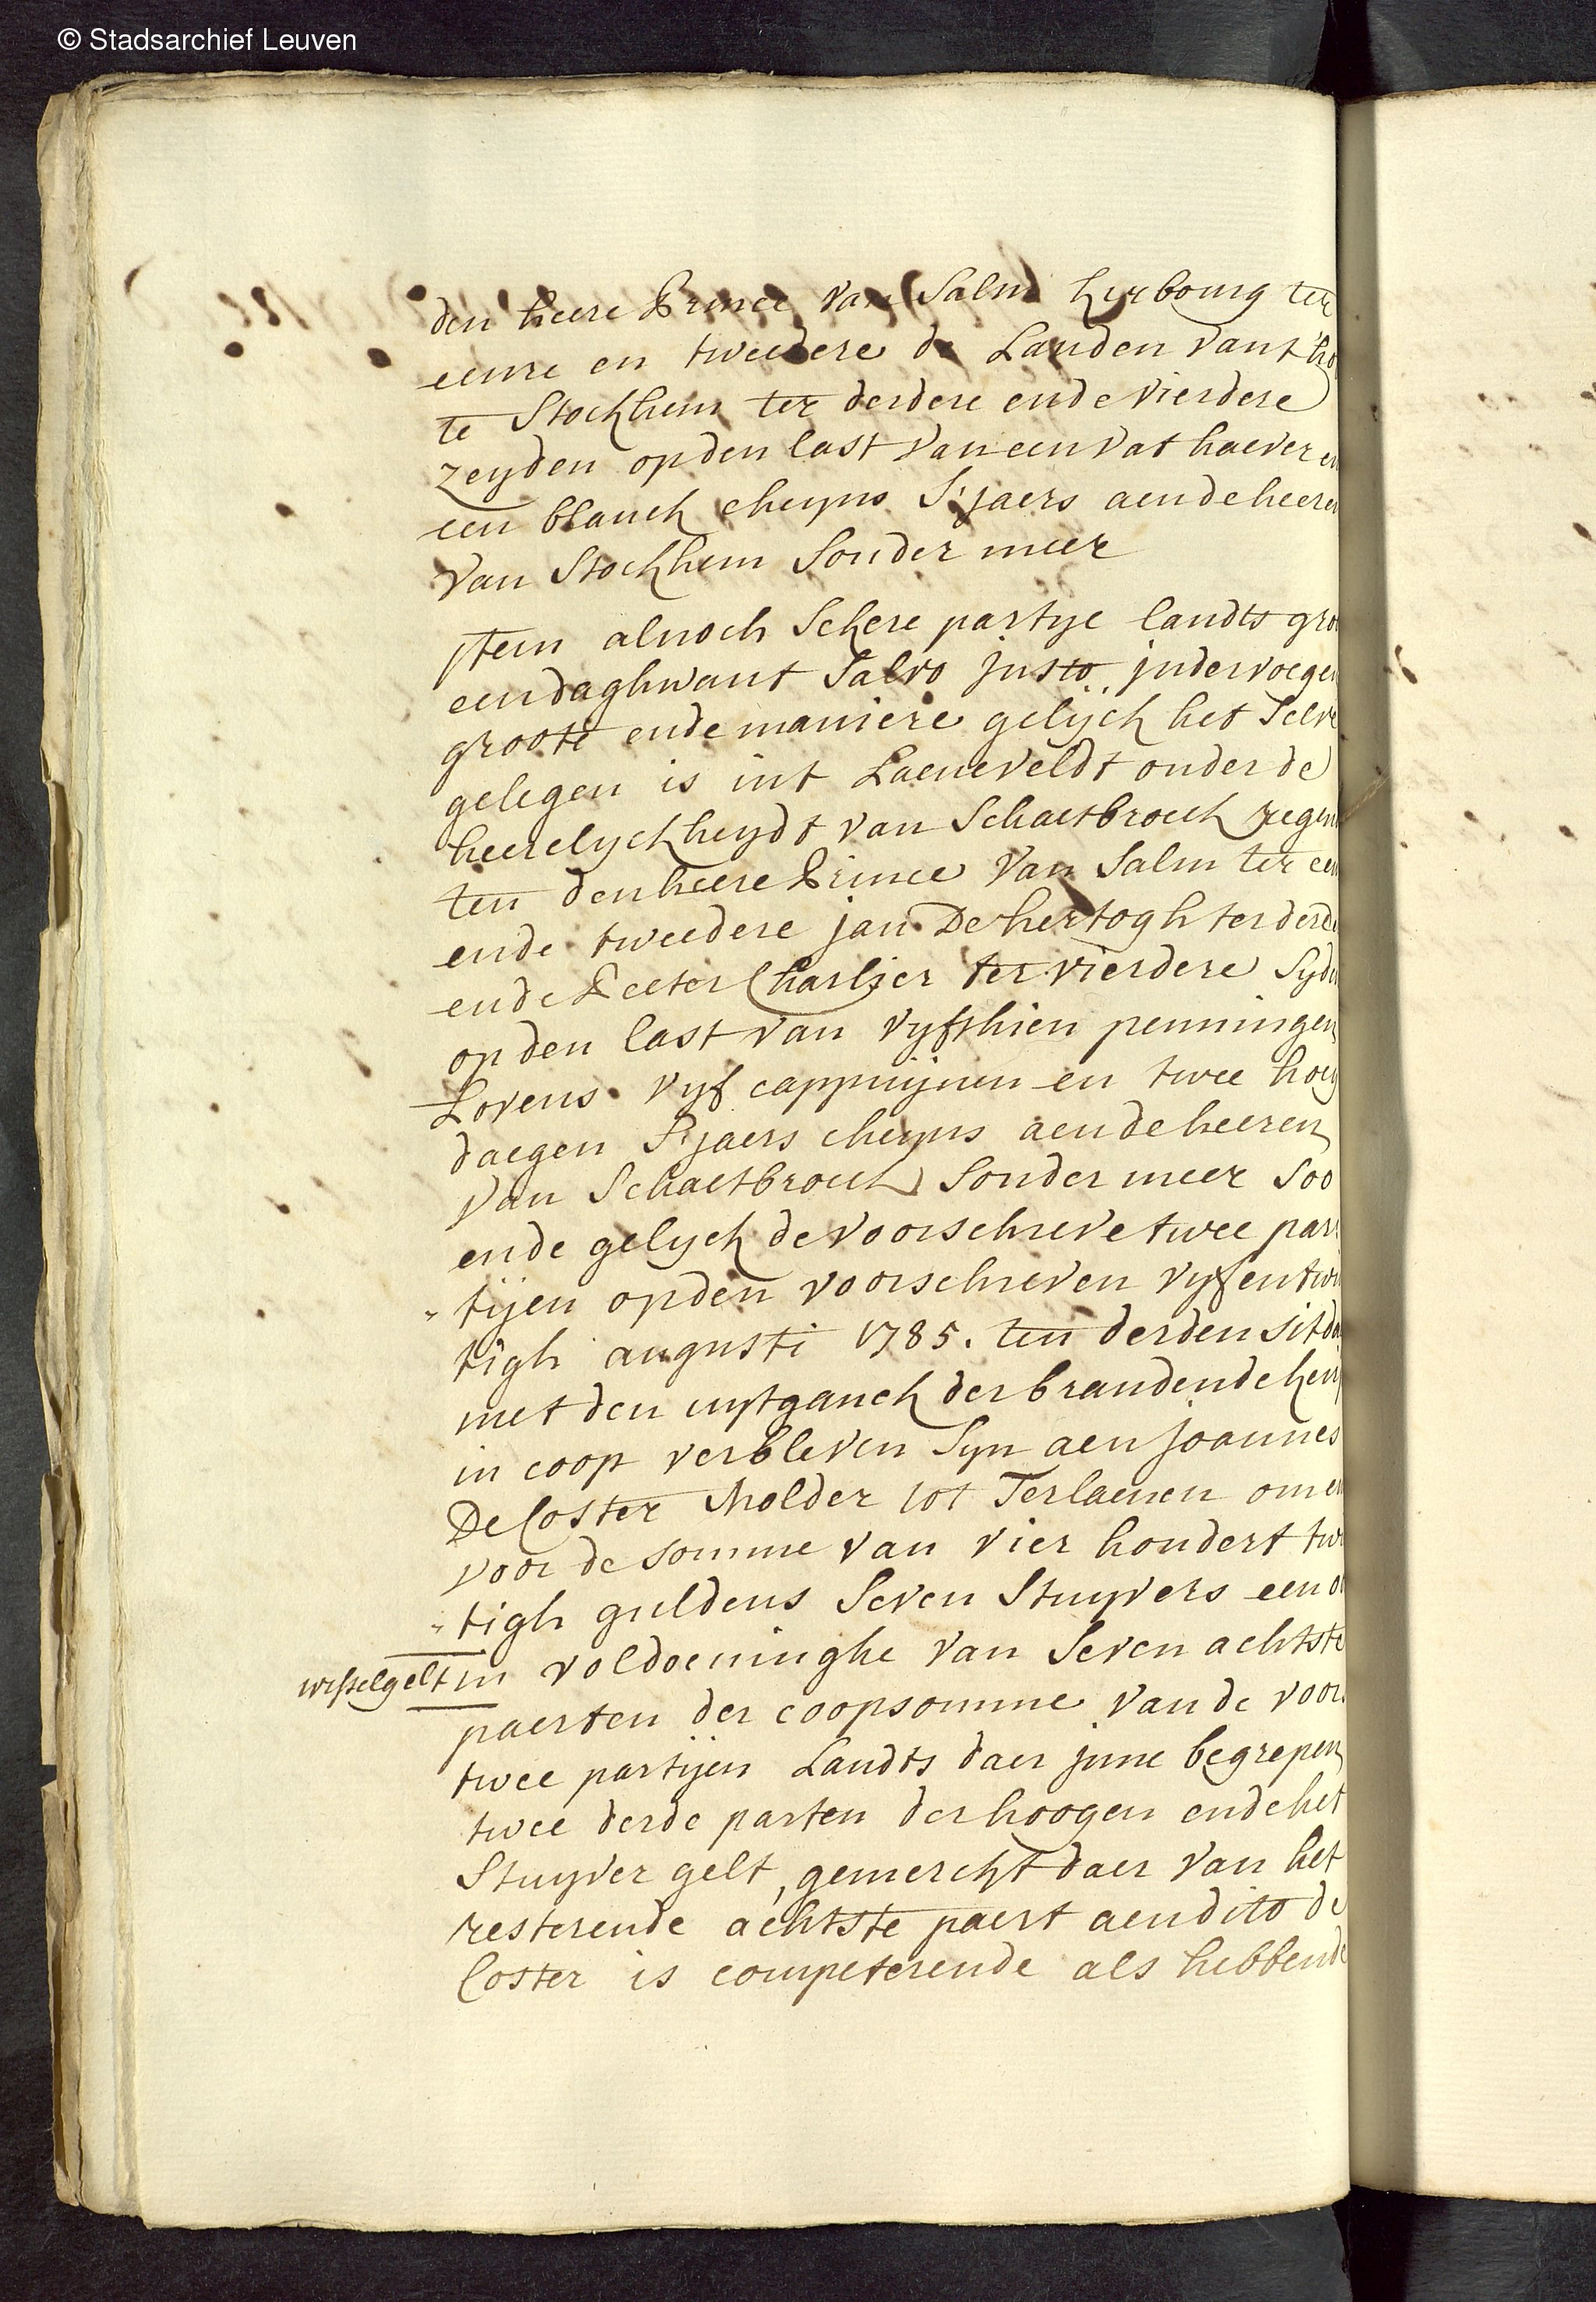 © Stadsarchief Leuven
den heere Prince van Salm kyrbourg ter
eenre en tweedere de Landen vant ho
te Stockhem ter derdere ende vierdere
zeyden op den last van een vat haever en
een blanck cheyns S'jaers aen de heeren
van Stockhem Sonder meer
jtem alnoch Sekere partye landts gro
een daghwant Salvo justo, in der voegen
groote ende maniere gelijck het Selve
gelegen is int Laeneveldt onder de
heerelyckheydt van Schaetbroeck regen
ten den heere Prince van Salm ter een
ende tweedere jan De hertogh ter derde
ende Peeter Charlier ter vierdere Syde
op den last van vyfthien penningen
Lovens vyf cappuijnen en twee hoey
daegen S'jaers cheyns aen de heeren
van Schaetbroeck Sonder meer Soo
ende gelyck de voorschreve twee par
tijen op den voorschreven vyfentwi
tigh augusti 1785. ten derden sitda
met den uytganck der brandende keir
in coop verbleven Syn aen joannes
De Coster Molder tot Terlaenen om en
voor de somme van vier hondert twi
tigh guldens Seven Stuyvers een o
wisselgelt in voldoeninghe van Seven achtste
paerten der coopsomme van de voors
twee partijen Landts daer inne begrepen
twee derde parten der hoogen ende het
Stuyver gelt, gemerckt daer van het
resterende achtste paert aen dito de
Coster is competerende als hebbende